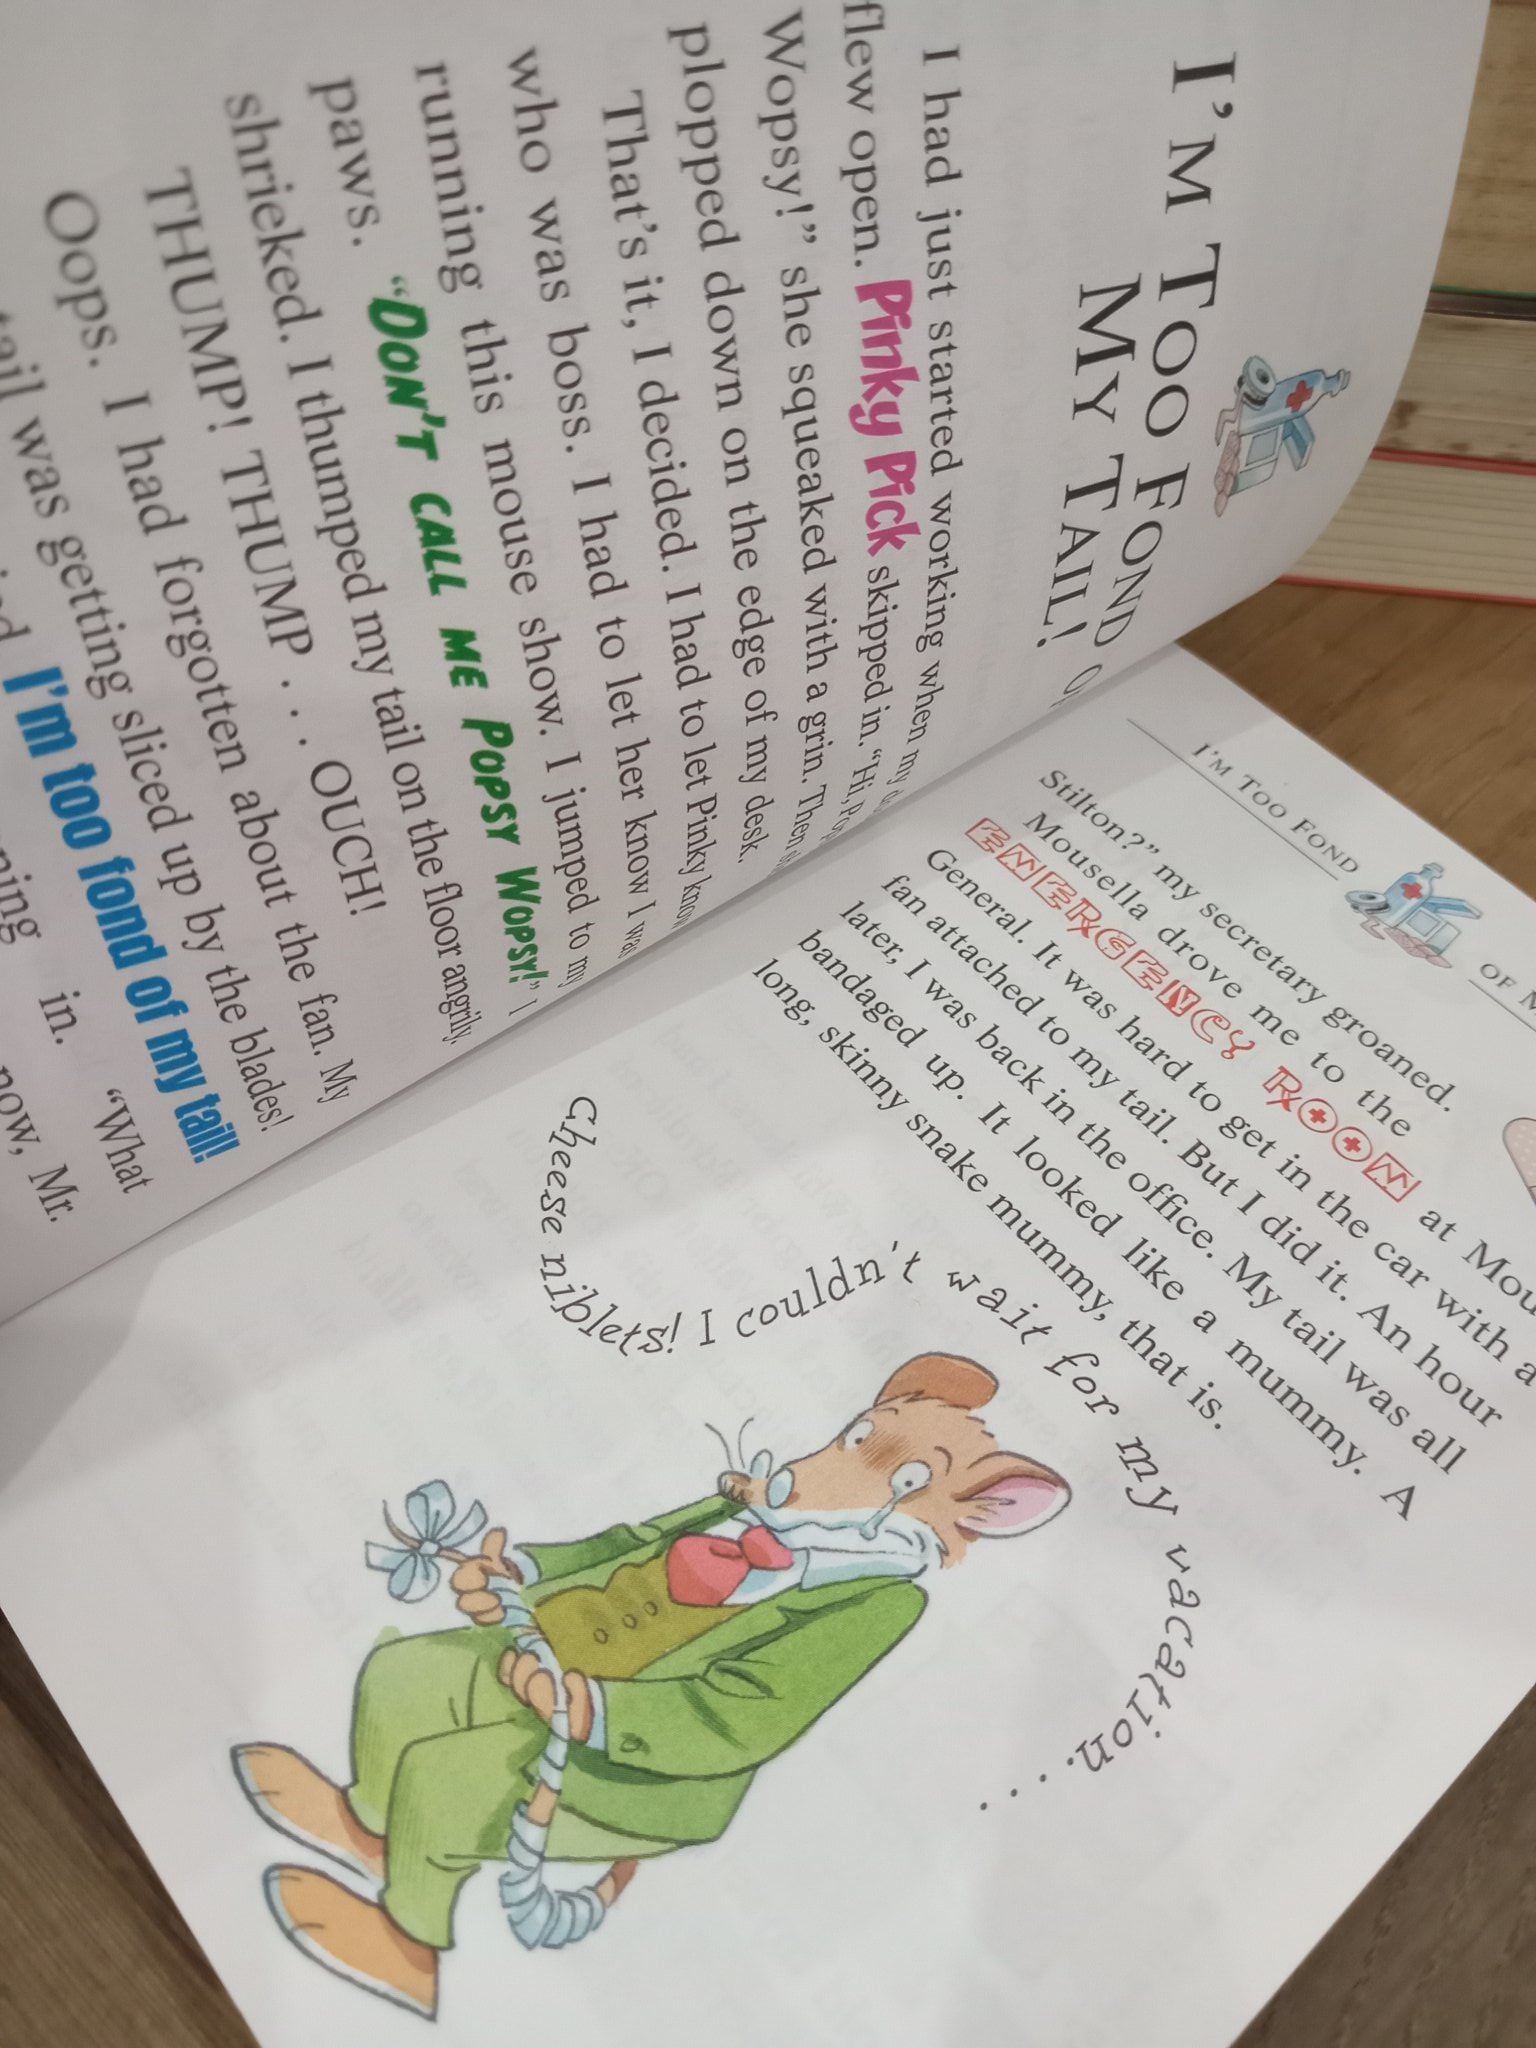 I'M TOO FOND
MY TAIL!
I had just started working when my
flew open. Pinky Pick skipped in. "Hi,
Wopsy!" she squeaked with a grin. Then
plopped down on the edge of my desk.
That's it, I decided. I had to let Pinky know
who was boss. I had to let her know I was
running this mouse show. I jumped to my
paws. "DON'T CALL ME POPSY WOPSY!" I
shrieked. I thumped my tail on the floor angrily.
THUMP! THUMP . . . OUCH!
Oops. I had forgotten about the fan. My
tail was getting sliced up by the blades!
I'm too fond of my tail!
in. "What
now, Mr.
I'M TOO FOND
OF
Stilton?" my secretary groaned.
Mousella drove me to the
EMERGENCY ROOM at
General. It was hard to get in the car with a
fan attached to my tail. But I did it. An hour
later, I was back in the office. My tail was all
bandaged up. It looked like a mummy. A
long, skinny snake mummy, that is.
Cheese niblets! I couldn't wait for my vacation. . . .